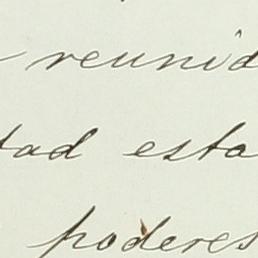 reunid
tad esta
poderes